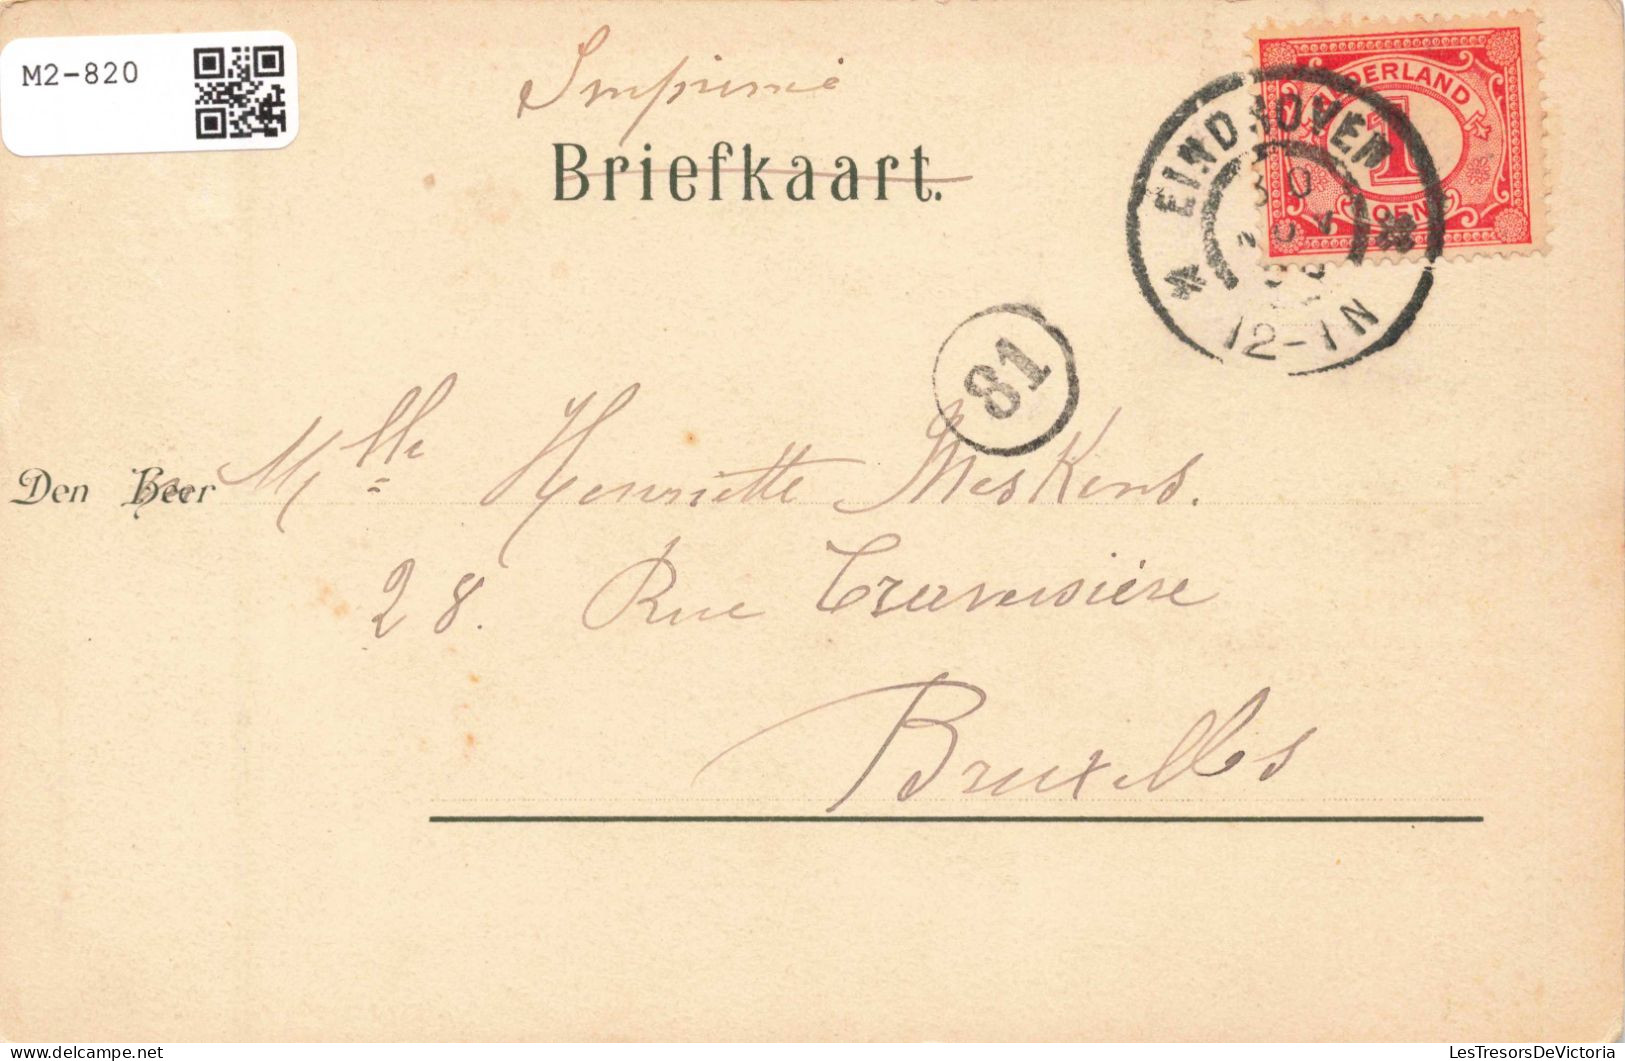 M2-820
Imprimé
Briefkaart.
NEDERLAND
1
CENT
EINDHOVEN
30
NOV
12-1N
81
Den Heer Mlle Henriette Meskens.
28. Rue Traversière
Bruxelles
LesTresorsDeVictoria